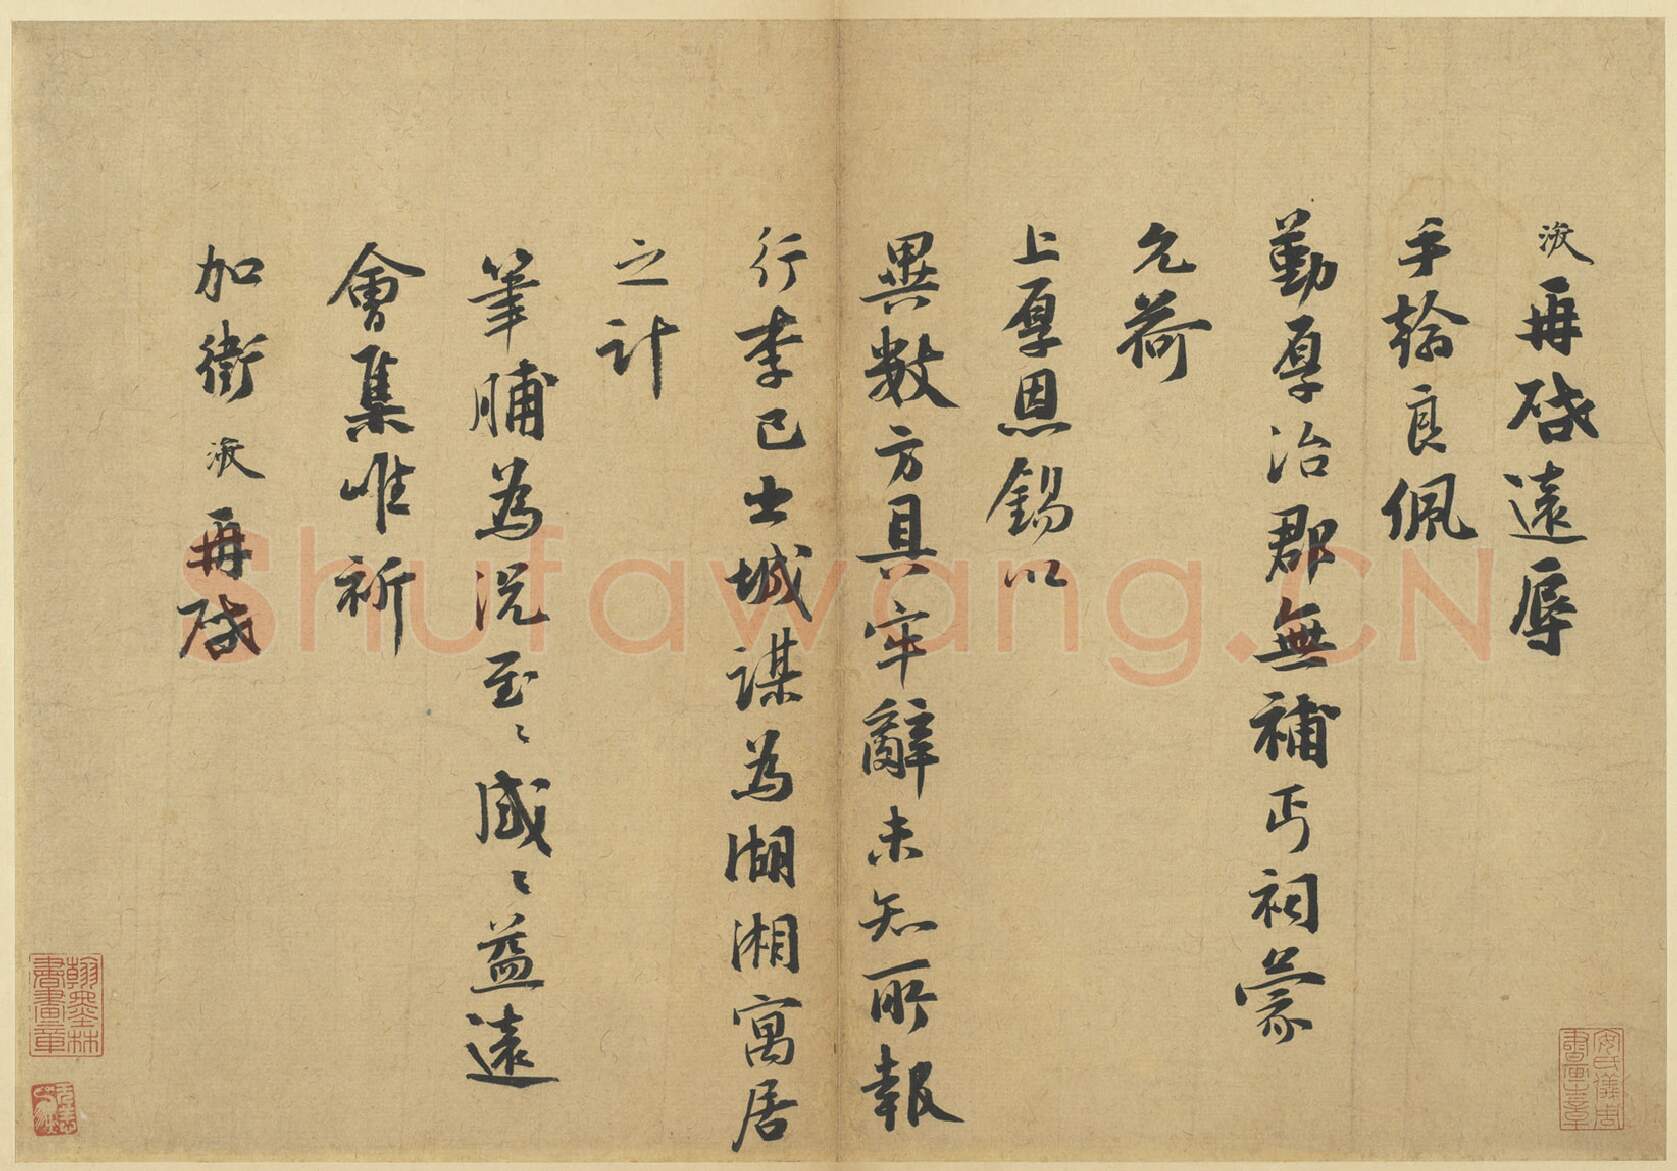 浚再啓遠辱
手翰良佩
勤厚治郡無補丐祠蒙
允荷
上厚恩錫以
異數方具牢辭未知所報
行李已出城謀為湖湘寓居
之計
筆脯為況至〻感〻益遠
會集唯祈
加衛浚再啓
Shufawang.CN
翰墨林書畫章
安氏儀周書畫之章